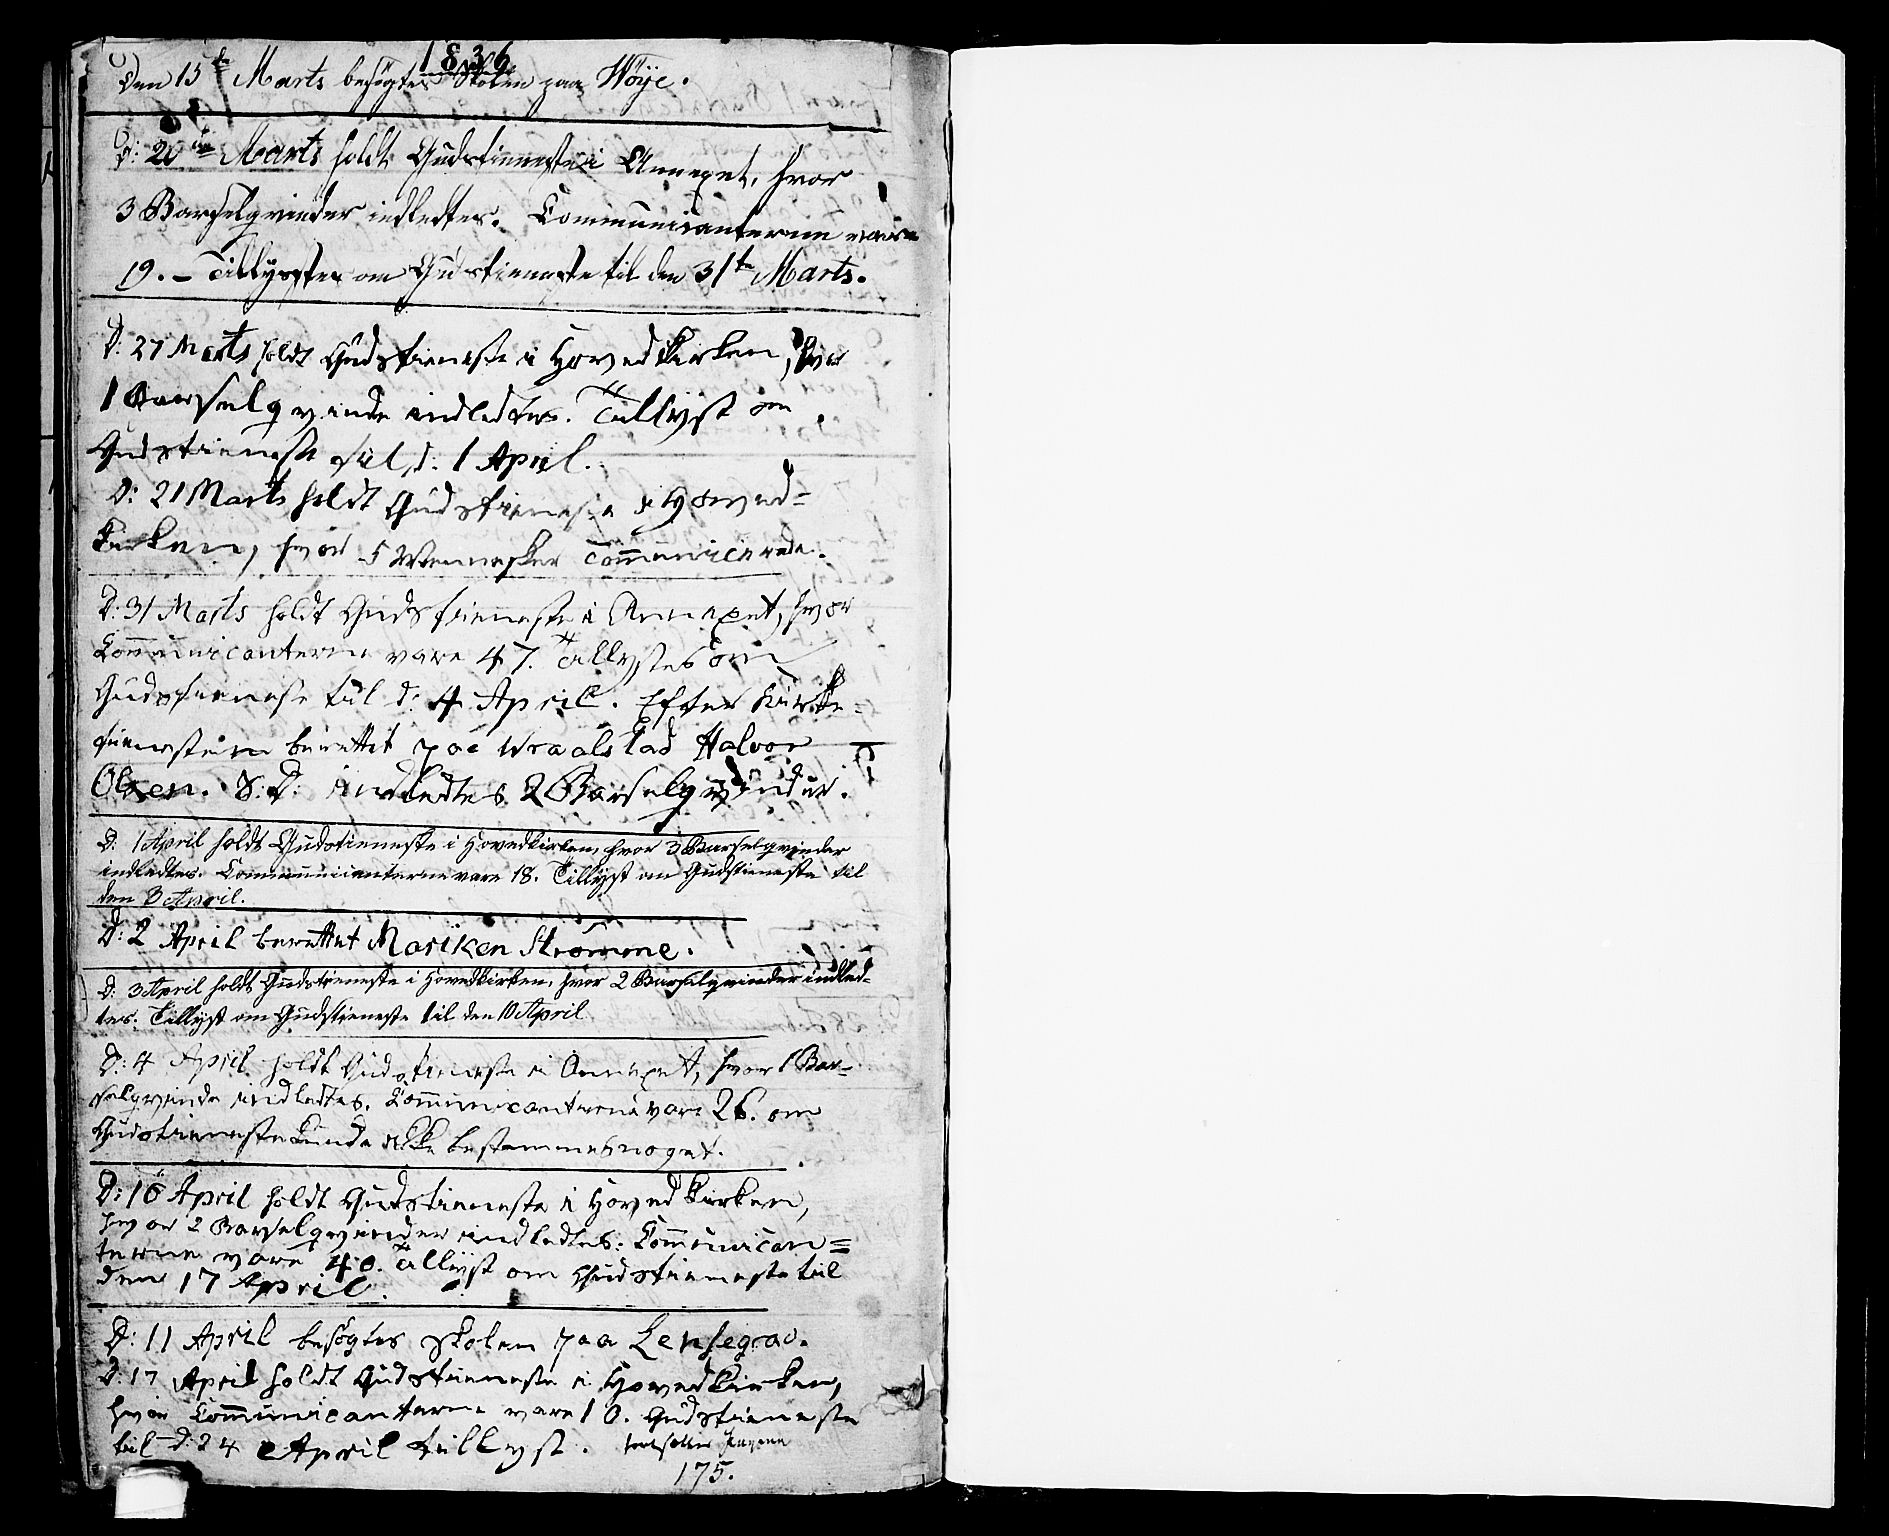 1836
Den 15de Marts besøgtes Skolen paa Wöÿe.
D: 20de Marts holdt Gudstieneste i Annexet, hvor
3 Barselqvinder indledtes. Communicanterne vare
19. – Tillystes om Gudstieneste til den 31te Marts.
D: 27 Marts holdt Gudstieneste i Hovedkirken, hvor
1 Barselqvinde indledtes. Tillyst om
Gudstieneste til d: 1 April.
D: 21 Marts holdt Gudstieneste i Hoved=
kirken, hvor 5 Mennesker com̄unicerede.
D: 31 Marts holdt Gudstieneste i Annexet, hvor
Com̄unicanterne vare 47. Tillystes om
Gudstieneste til d: 4 April. Efter Kirke=
tienesten berettet paa Wraalstad Halvor
Olsen. S: D: indledtes 2 Barselqvinder.
D. 1 April holdt Gudstieneste i Hovedkirken, hvor 3 Barselqvinder
indledtes. Communicanterne vare 18. Tillyst om Gudstieneste til
den 3 April.
D: 2 April berettet Mariken Strømme.
D: 3 April holdt Gudstieneste i Hovedkirken, hvor 2 Barselqvinder indled=
tes. Tillyst om Gudstieneste til den 10 April
D: 4 April holdt Gudstieneste i Annexet, hvor 1 Bar=
selqvinde indledtes. Com̄unicanterne vare 26. om
Gudstieneste kunde ikke bestemmes noget.
D: 10 April holdt Gudstieneste i Hovedkirken,
hvor 2 Barselqvinder indledtes. Com̄unican=
terne vare 40. Tillyst om Gudstieneste til
den 17 April.
D: 11 April besøgtes Skolen paa Lensegrav.
D: 17 April holdt Gudstieneste i Hovedkirken,
hvor Com̄unicanterne vare 10. Gudstieneste
til d: 24 April tillyst.
175.